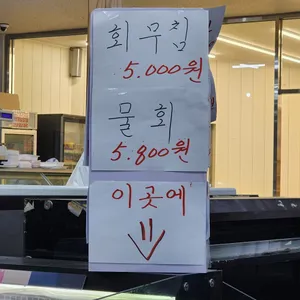 회 무침
5.000원
물 회
5.800원
이곳에